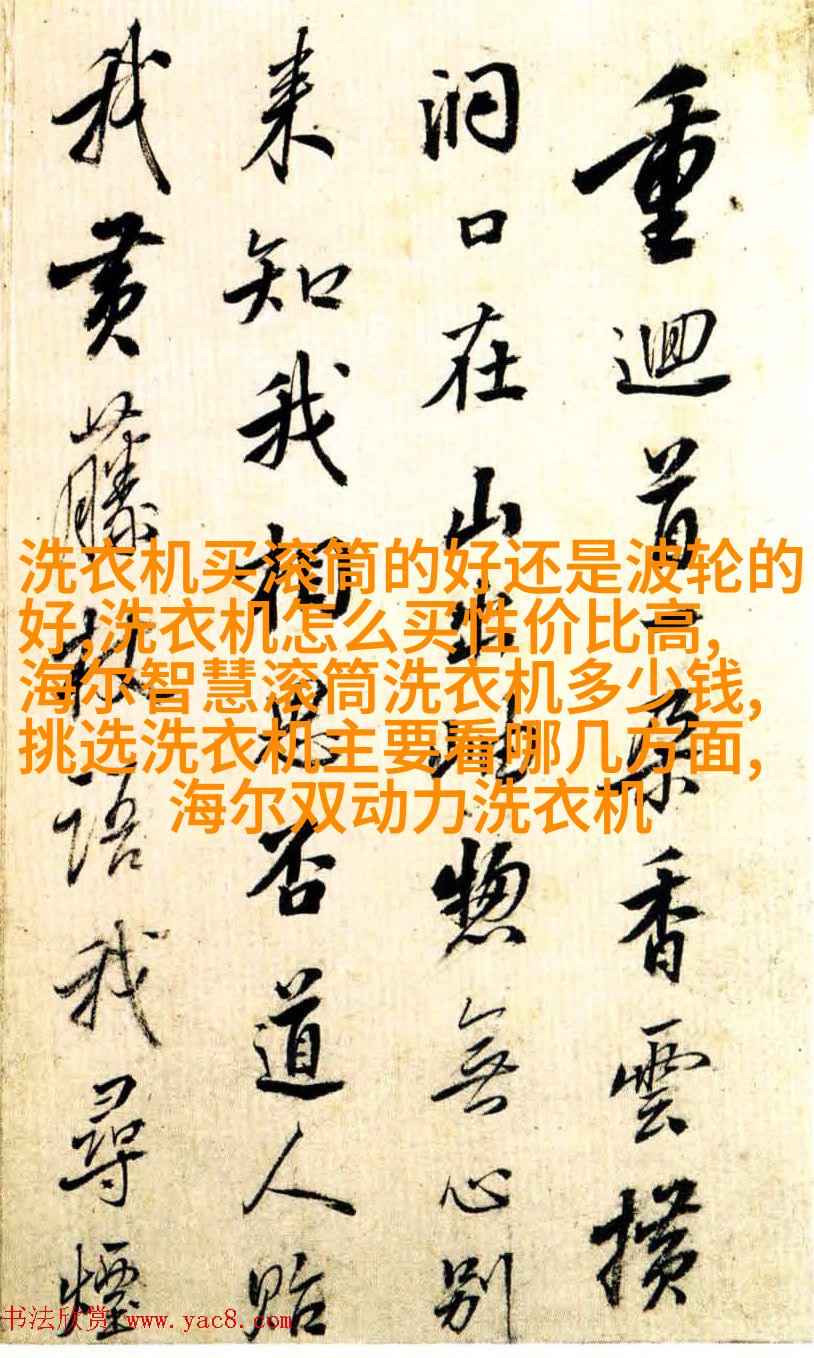 重迴首一朵香雲横
洞口在山惣無心别
来知我相思否道人贻
我黄藤杖語我尋煙
洗衣机买滚筒的好还是波轮的
好,洗衣机怎么买性价比高,
海尔智慧滚筒洗衣机多少钱,
挑选洗衣机主要看哪几方面,
海尔双动力洗衣机
书法欣赏 www.yac8.com